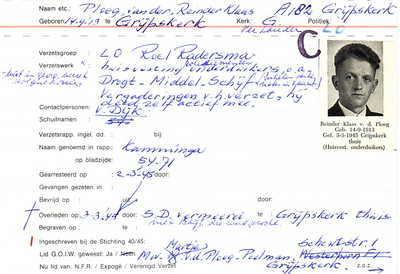 Naam etc.: Ploeg, van der, Reinder Klaas A182 Grijpskerk
Geboren: 14-9-13 Grijpskerk Kerk: G. Politiek:
C
Verzetsgroep: LO Roel Radersma
Verzetswerk huisvesting onderduikers, o.a.
Drogt - Middel - Schijf
Vergaderingen v.h. verzet, hij
deed zelf actief mee.
Contactpersonen: v. Dijk
Schuilnamen:
Verzetsrapp. ingel. dd.: bij:
Naam genoemd in rapp.: Kamminga
op bladzijde: 54-71
Gearresteerd op 2-3-45 door:
Gevangen gezeten in:
Bevrijd op uit door:
Overleden op: 3-3-45 door: S.D. vermoord te: Grijpskerk thuis
Begraven op: te:
Ingeschreven bij de Stichting 40/45: Martje Schoolstr. 1
Lid G.O.I.W. geheel: Ja / Mw. v.d. Ploeg-Poelman,
Nu lid van: N.F.R. / Expogé / Verenigd Verzet Grijpskerk z.o.z.
Reinder Klaas v. d. Ploeg
Geb. 14-9-1913
Gef. 3-3-1945 Grijpskerk
thuis
(Huisvest. onderduikers)